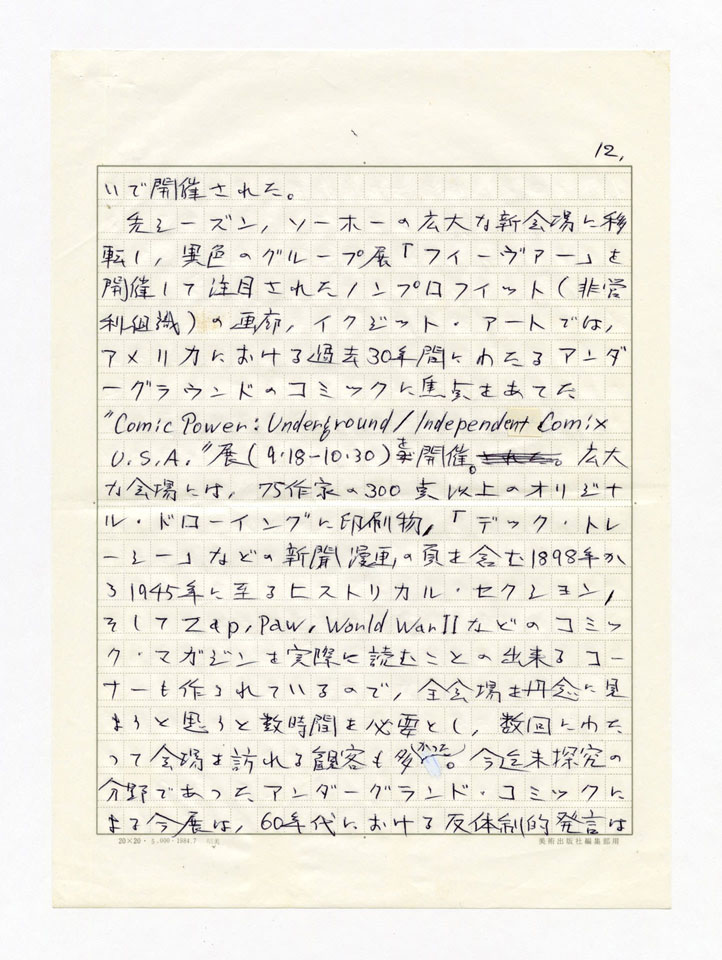 12,
いで開催された。
先シーズン,ソーホーの広大な新会場に移
転し,異色のグループ展「フィーヴァー」を
開催して注目されたノンプロフィット(非営
利組織)の画廊,イクジット・アートでは,
アメリカにおける過去30年間にわたるアンダ
ーグラウンドのコミックに焦点をあてた
"Comic Power: Underground/Independent Comix
U.S.A."展(9.18-10.30)を開催。広大
な会場には,75作家の300点以上のオリジナ
ル・ドローイングに印刷物,「デック・トレ
ーシー」などの新聞漫画,の頁を含む1898年か
ら1945年に至るヒストリカル・セクション,
そしてZap,Paw,World War IIなどのコミッ
ク・マガジンを実際に読むことの出来るコー
ナーも作られているので,全会場を丹念に見
ようと思うと数時間を必要とし,数回にわた
って会場を訪れる観客も多かった。今迄未探究の
分野であったアンダーグランド・コミックに
よる今展は,60年代における反体制的発言は
20×20・5,000・1984.7
美術出版社編集部用